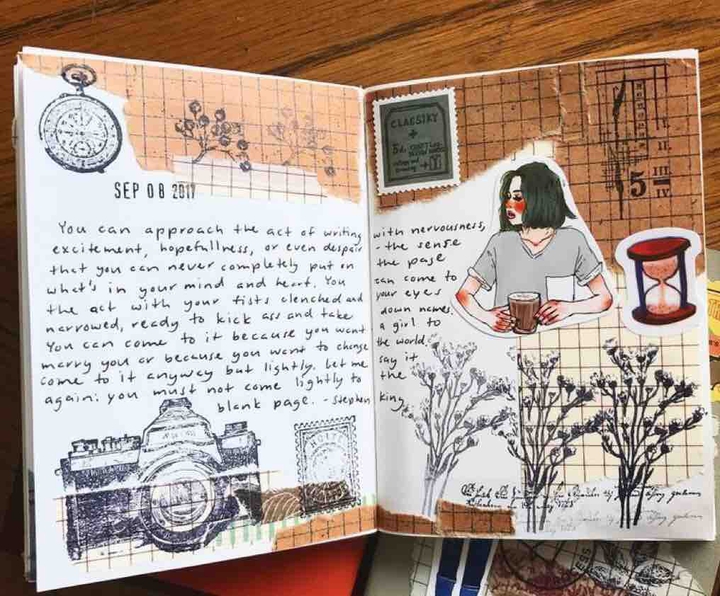 SEP 08 2017
You can approach the act of writing with nervousness,
excitement, hopefullness, or even despair - the sense
that you can never completely put on the page
what's in your mind and heart. You can come to
the act with your fists clenched and your eyes
narrowed, ready to kick ass and take down names.
You can come to it because you want a girl to
marry you or because you want to change the world.
come to it anyway but lightly. Let me say it
again: you must not come lightly to the
blank page. - Stephen king
CLASSIKY
+
5d.
5
II
III
IV